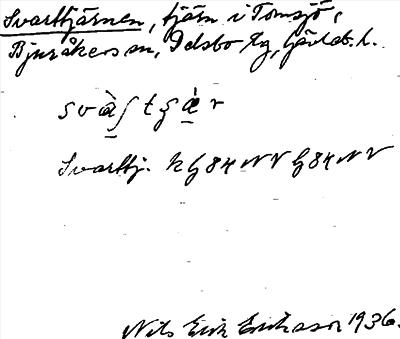 Svarttjärnen, tjärn i Tomsjö,
Bjuråkers sn, Delsbo tg, Gävleb. l.
svàʃtʂæ̀r
Svarttj. K G84NV G84NV
Nils Erik Eriksson 1936.